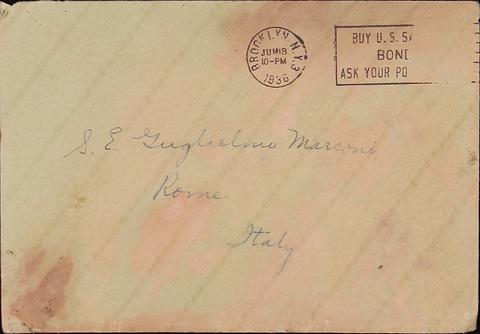 BROOKLYN, N.Y. 3
JUN 18
10-PM
1936
BUY U.S. SA
BOND
ASK YOUR PO
S. E. Guglielmo Marconi
Rome
Italy